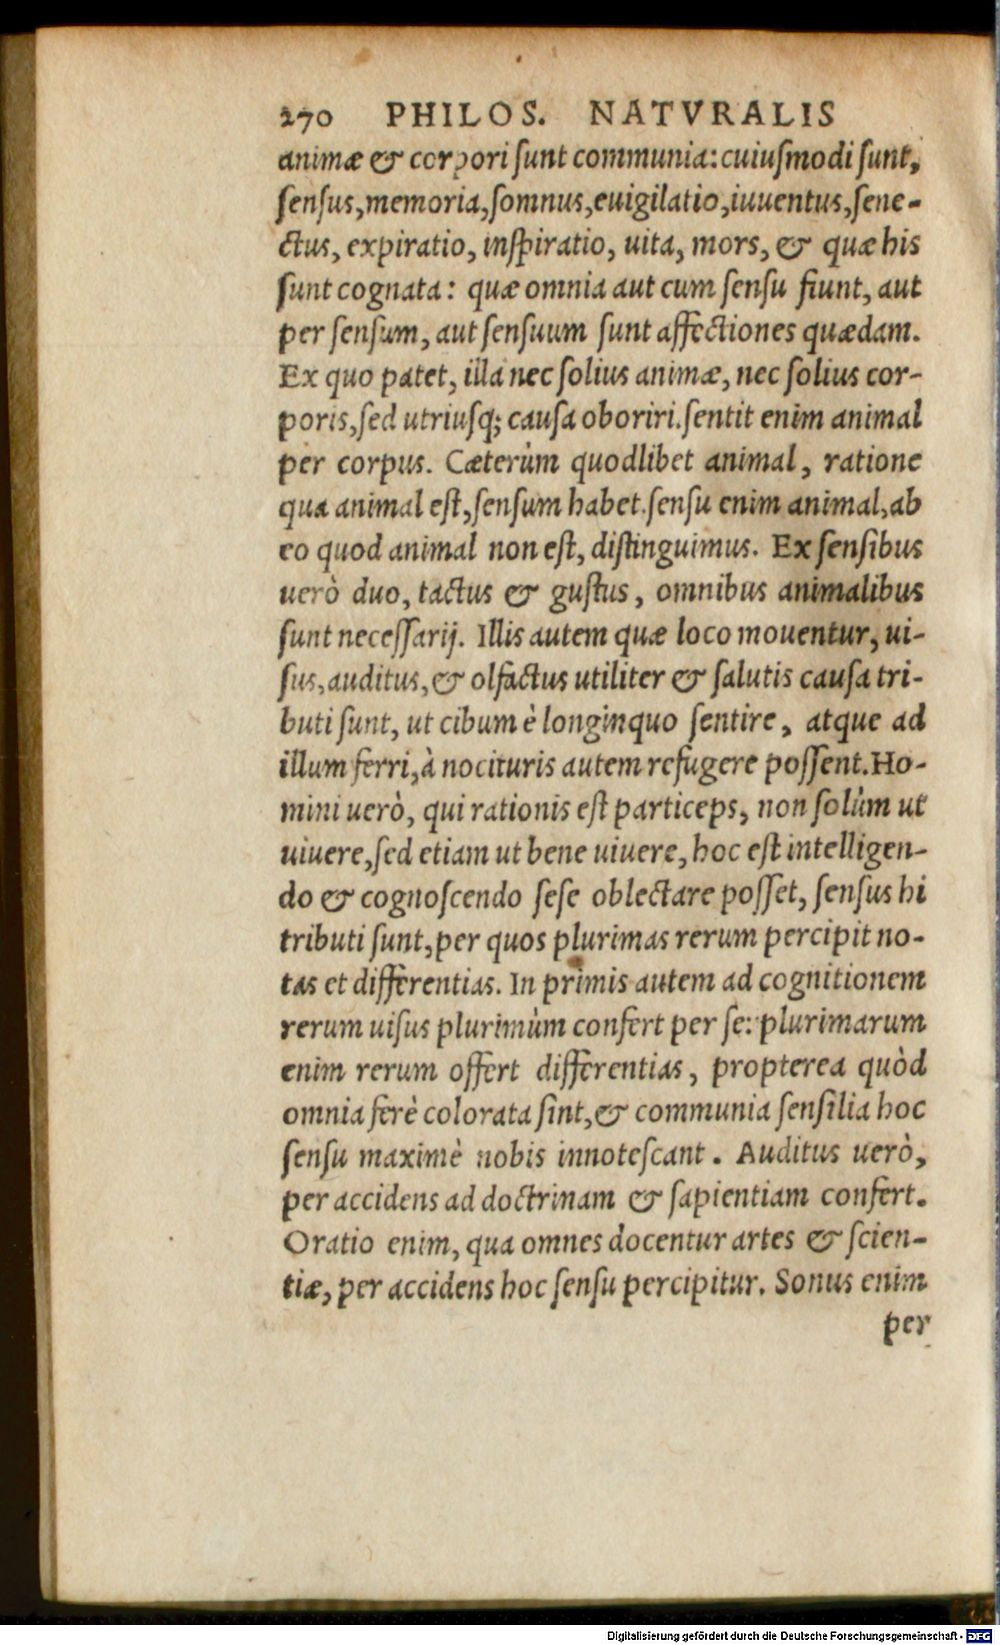 270 PHILOS. NATVRALIS
animæ & corpori ſunt communia: cuiuſmodi ſunt,
ſenſus, memoria, ſomnus, euigilatio, iuuentus, ſene-
ctus, expiratio, inſpiratio, uita, mors, & quæ his
ſunt cognata: quæ omnia aut cum ſenſu fiunt, aut
per ſenſum, aut ſenſuum ſunt affectiones quædam.
Ex quo patet, illa nec ſolius animæ, nec ſolius cor-
poris, ſed utriuſq; cauſa oboriri. ſentit enim animal
per corpus. Cæterùm quodlibet animal, ratione
qua animal eſt, ſenſum habet. ſenſu enim animal, ab
eo quod animal non eſt, diſtinguimus. Ex ſenſibus
uerò duo, tactus & guſtus, omnibus animalibus
ſunt neceſſarij. Illis autem quæ loco mouentur, ui-
ſus, auditus, & olfactus utiliter & ſalutis cauſa tri-
buti ſunt, ut cibum è longinquo ſentire, atque ad
illum ferri, à nocituris autem refugere poſſent. Ho-
mini uerò, qui rationis eſt particeps, non ſolùm ut
uiuere, ſed etiam ut bene uiuere, hoc eſt intelligen-
do & cognoſcendo ſeſe oblectare poſſet, ſenſus hi
tributi ſunt, per quos plurimas rerum percipit no-
tas et differentias. In primis autem ad cognitionem
rerum uiſus plurimùm confert per ſe: plurimarum
enim rerum offert differentias, propterea quòd
omnia ferè colorata ſint, & communia ſenſilia hoc
ſenſu maximè nobis innoteſcant. Auditus uerò,
per accidens ad doctrinam & ſapientiam confert.
Oratio enim, qua omnes docentur artes & ſcien-
tiæ, per accidens hoc ſenſu percipitur. Sonus enim
per
Digitalisierung gefördert durch die Deutsche Forschungsgemeinschaft - DFG